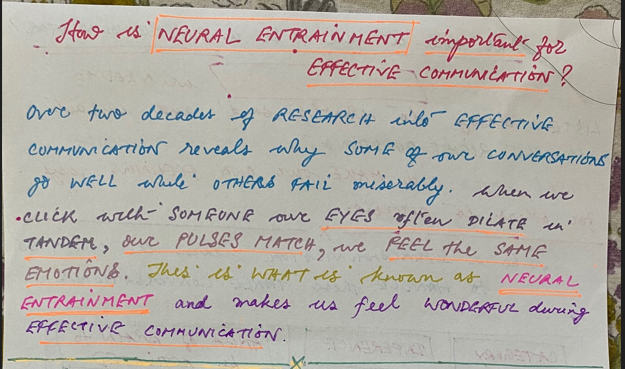 How is NEURAL ENTRAINMENT important for
EFFECTIVE COMMUNICATION?
Over two decades of RESEARCH into EFFECTIVE
COMMUNICATION reveals why SOME of our CONVERSATIONS
go WELL while OTHERS FAIL miserably. When we
CLICK with SOMEONE our EYES often DILATE in
TANDEM, our PULSES MATCH, we FEEL the SAME
EMOTIONS. This is WHAT is known as NEURAL
ENTRAINMENT and makes us feel WONDERFUL during
EFFECTIVE COMMUNICATION.